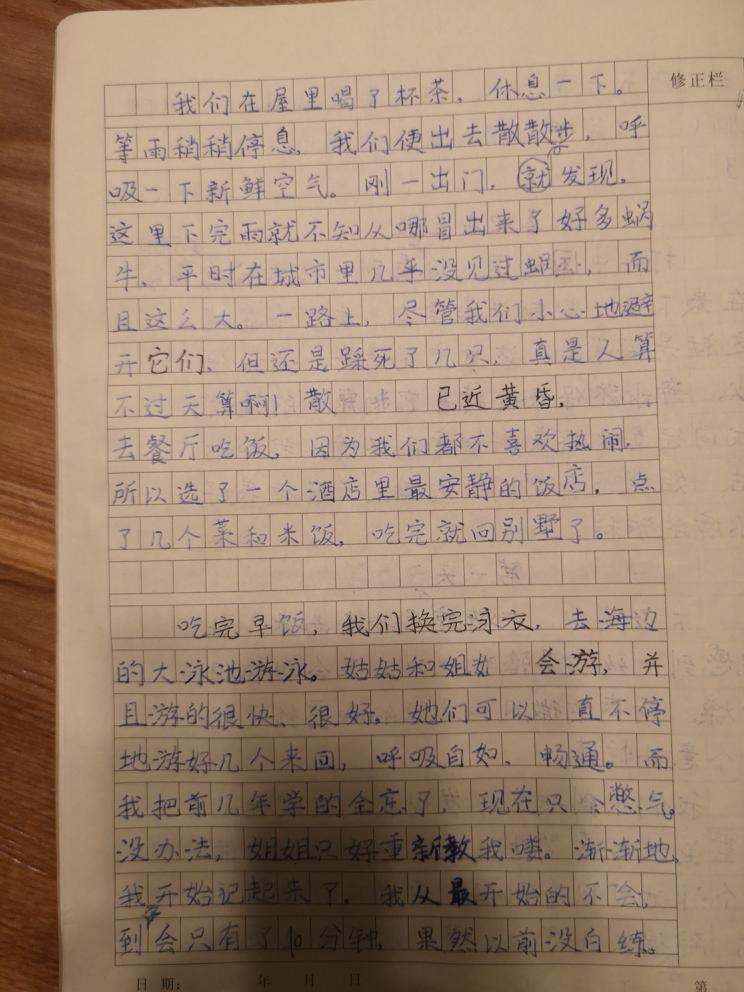 修正栏
我们在屋里喝了杯茶，休息一下。
等雨稍稍停息，我们便出去散散步，呼
吸一下新鲜空气。刚一出门，就发现，
这里下完雨就不知从哪冒出来了好多蜗
牛，平时在城市里几乎没见过蜗牛，而
且这么大。一路上，尽管我们小心地避
开它们，但还是踩死了几只，真是人算
不过天算啊！散 已近黄昏，
去餐厅吃饭，因为我们都不喜欢热闹，
所以选了一个酒店里最安静的饭店，点
了几个菜和米饭，吃完就回别墅了。
吃完早饭，我们换完泳衣，去海边
的大泳池游泳。姑姑和姐姐 会游，并
且游的很快、很好，她们可以一直不停
地游好几个来回，呼吸自如、畅通。而
我把前几年学的全忘了，现在只会憋气，
没办法，姐姐只好重新教我喽。渐渐地，
我开始记起来了，我从最开始的不会，
到会只有了10分钟，果然以前没白练。
日期： 年 月 日
第